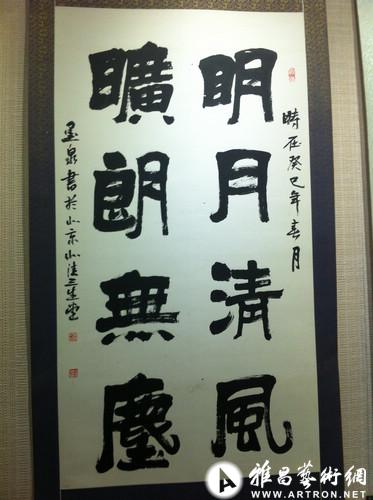 明月清風
曠朗無塵
時在癸巳年春月
墨泉書於北京
雅昌藝術網
WWW.ARTRON.NET